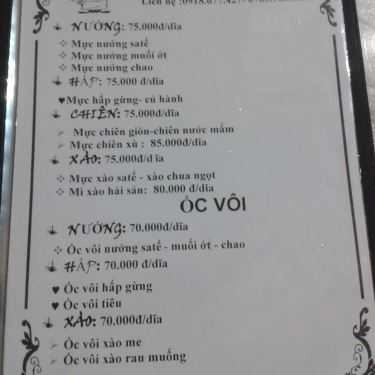 Liên hệ :0918.677.427
NƯỚNG: 75.000đ/dĩa
Mực nướng satế
Mực nướng muối ớt
Mực nướng chao
HẤP: 75.000 đ/dĩa
Mực hấp gừng- củ hành
CHIÊN: 75.000đ/dĩa
Mực chiên giòn-chiên nước mắm
Mực chiên xù : 85.000đ/dĩa
XÀO: 75.000đ/dĩa
Mực xào satế - xào chua ngọt
Mì xào hải sản: 80.000 đ/dĩa
ỐC VÔI
NƯỚNG: 70.000đ/dĩa
Ốc vôi nướng satế - muối ớt - chao
HẤP: 70.000 đ/dĩa
Ốc vôi hấp gừng
Ốc vôi tiêu
XÀO: 70.000đ/dĩa
Ốc vôi xào me
Ốc vôi xào rau muống